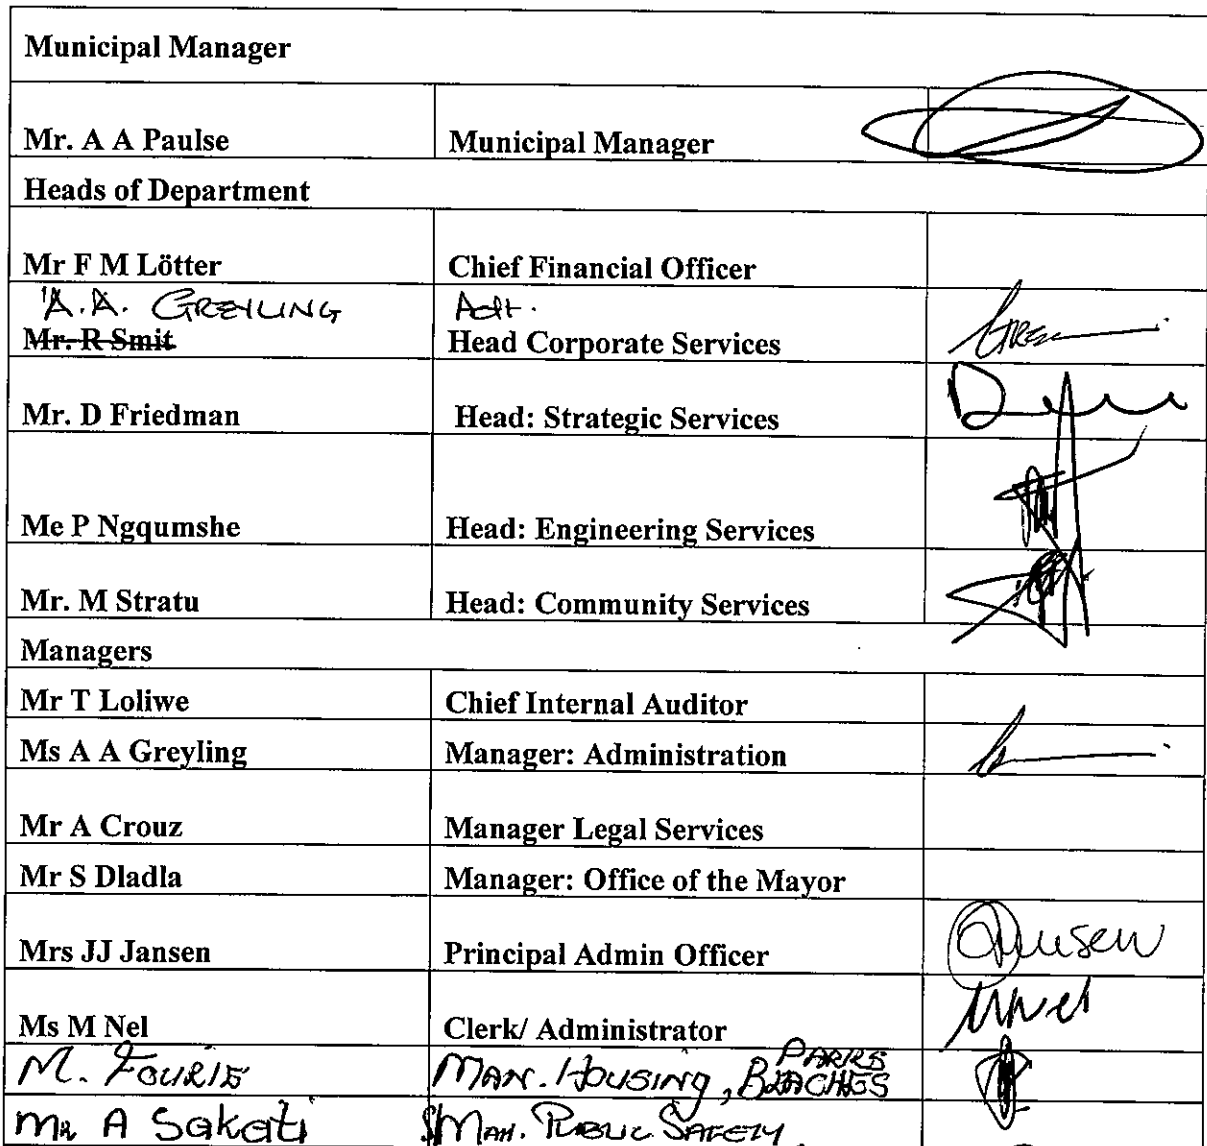 Municipal Manager
Mr. A A Paulse Municipal Manager
Heads of Department
Mr F M Lötter Chief Financial Officer
A.A. GREYLING Act.
Mr. R Smit Head Corporate Services
Mr. D Friedman Head: Strategic Services
Me P Ngqumshe Head: Engineering Services
Mr. M Stratu Head: Community Services
Managers
Mr T Loliwe Chief Internal Auditor
Ms A A Greyling Manager: Administration
Mr A Crouz Manager Legal Services
Mr S Dladla Manager: Office of the Mayor
Mrs JJ Jansen Principal Admin Officer
Ms M Nel Clerk/ Administrator MNel
M. FOURIE MAN. HOUSING, PARKS BEACHES
MR A Sakati MAN. PUBLIC SAFETY